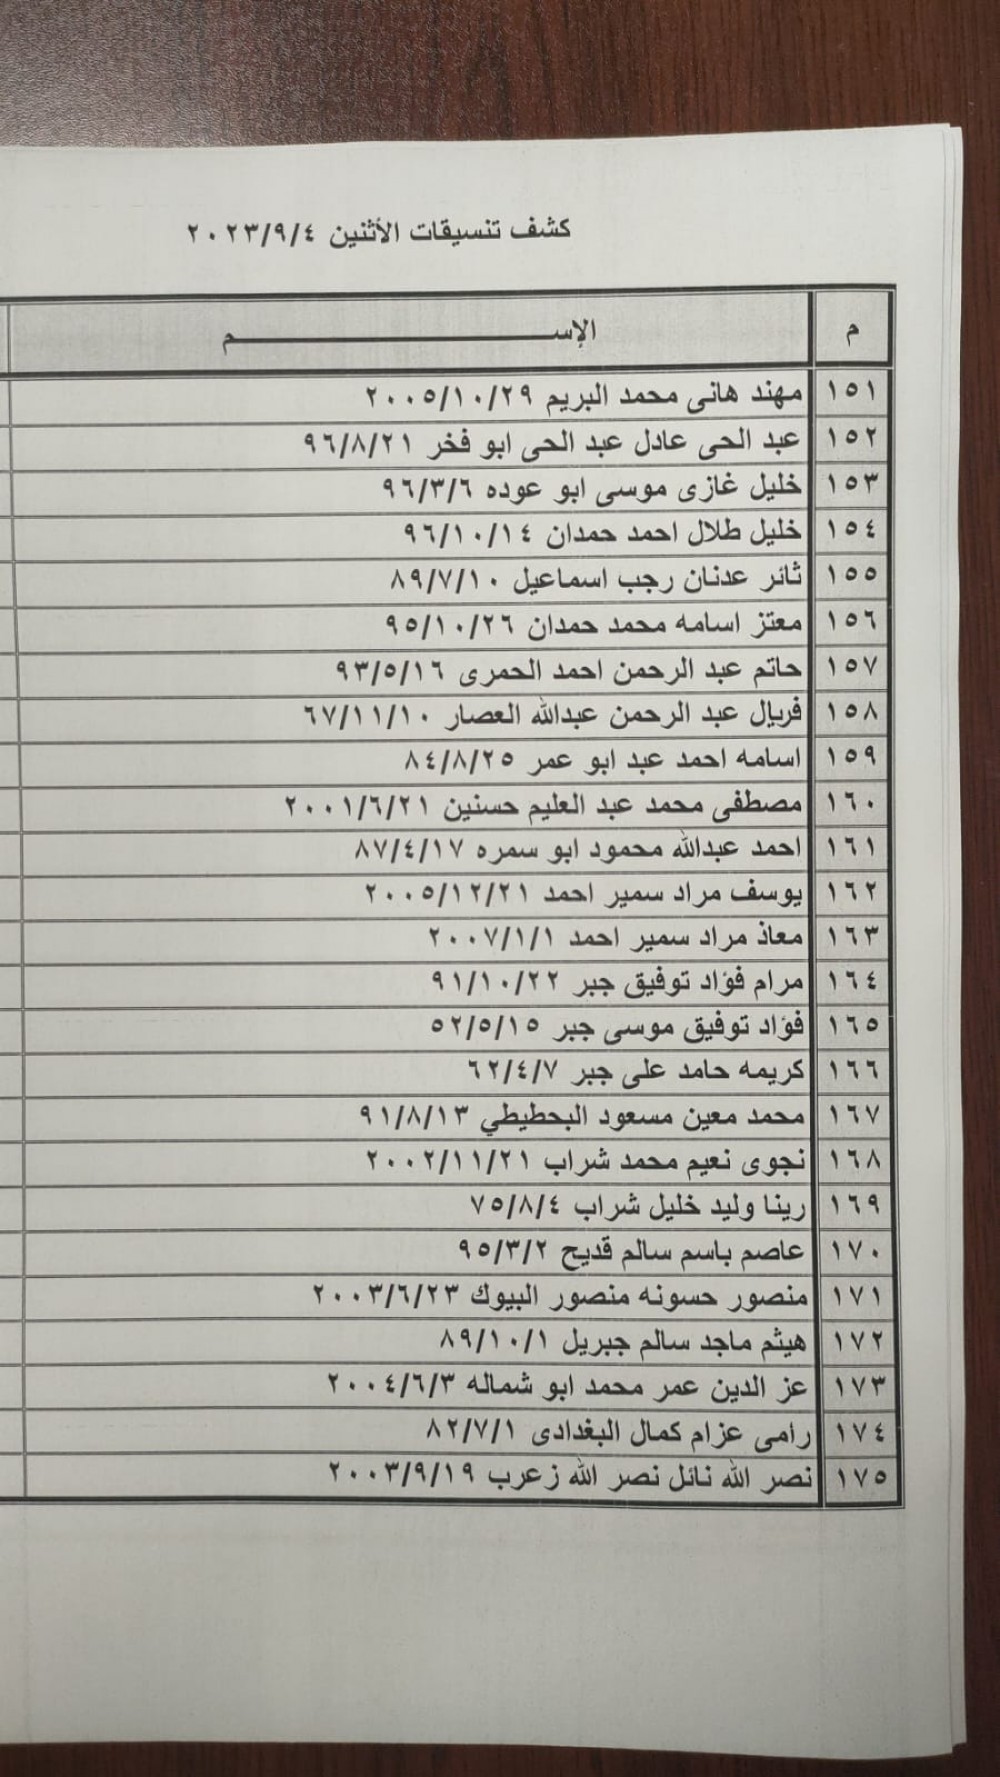 كشف تنسيقات الأثنين ٢٠٢٣/٩/٤
م الإســـــــــم
١٥١ مهند هانى محمد البريم ٢٠٠٥/١٠/٢٩
١٥٢ عبد الحى عادل عبد الحى ابو فخر ٩٦/٨/٢١
١٥٣ خليل غازى موسى ابو عوده ٩٦/٣/٦
١٥٤ خليل طلال احمد حمدان ٩٦/١٠/١٤
١٥٥ ثائر عدنان رجب اسماعيل ٨٩/٧/١٠
١٥٦ معتز اسامه محمد حمدان ٩٥/١٠/٢٦
١٥٧ حاتم عبد الرحمن احمد الحمرى ٩٣/٥/١٦
١٥٨ فريال عبد الرحمن عبدالله العصار ٦٧/١١/١٠
١٥٩ اسامه احمد عبد ابو عمر ٨٤/٨/٢٥
١٦٠ مصطفى محمد عبد العليم حسنين ٢٠٠١/٦/٢١
١٦١ احمد عبدالله محمود ابو سمره ٨٧/٤/١٧
١٦٢ يوسف مراد سمير احمد ٢٠٠٥/١٢/٢١
١٦٣ معاذ مراد سمير احمد ٢٠٠٧/١/١
١٦٤ مرام فؤاد توفيق جبر ٩١/١٠/٢٢
١٦٥ فؤاد توفيق موسى جبر ٥٢/٥/١٥
١٦٦ كريمه حامد على جبر ٦٢/٤/٧
١٦٧ محمد معين مسعود البحطيطي ٩١/٨/١٣
١٦٨ نجوى نعيم محمد شراب ٢٠٠٢/١١/٢١
١٦٩ رينا وليد خليل شراب ٧٥/٨/٤
١٧٠ عاصم باسم سالم قديح ٩٥/٣/٢
١٧١ منصور حسونه منصور البيوك ٢٠٠٣/٦/٢٣
١٧٢ هيثم ماجد سالم جبريل ٨٩/١٠/١
١٧٣ عز الدين عمر محمد ابو شماله ٢٠٠٤/٦/٣
١٧٤ رامى عزام كمال البغدادى ٨٢/٧/١
١٧٥ نصر الله نائل نصر الله زعرب ٢٠٠٣/٩/١٩